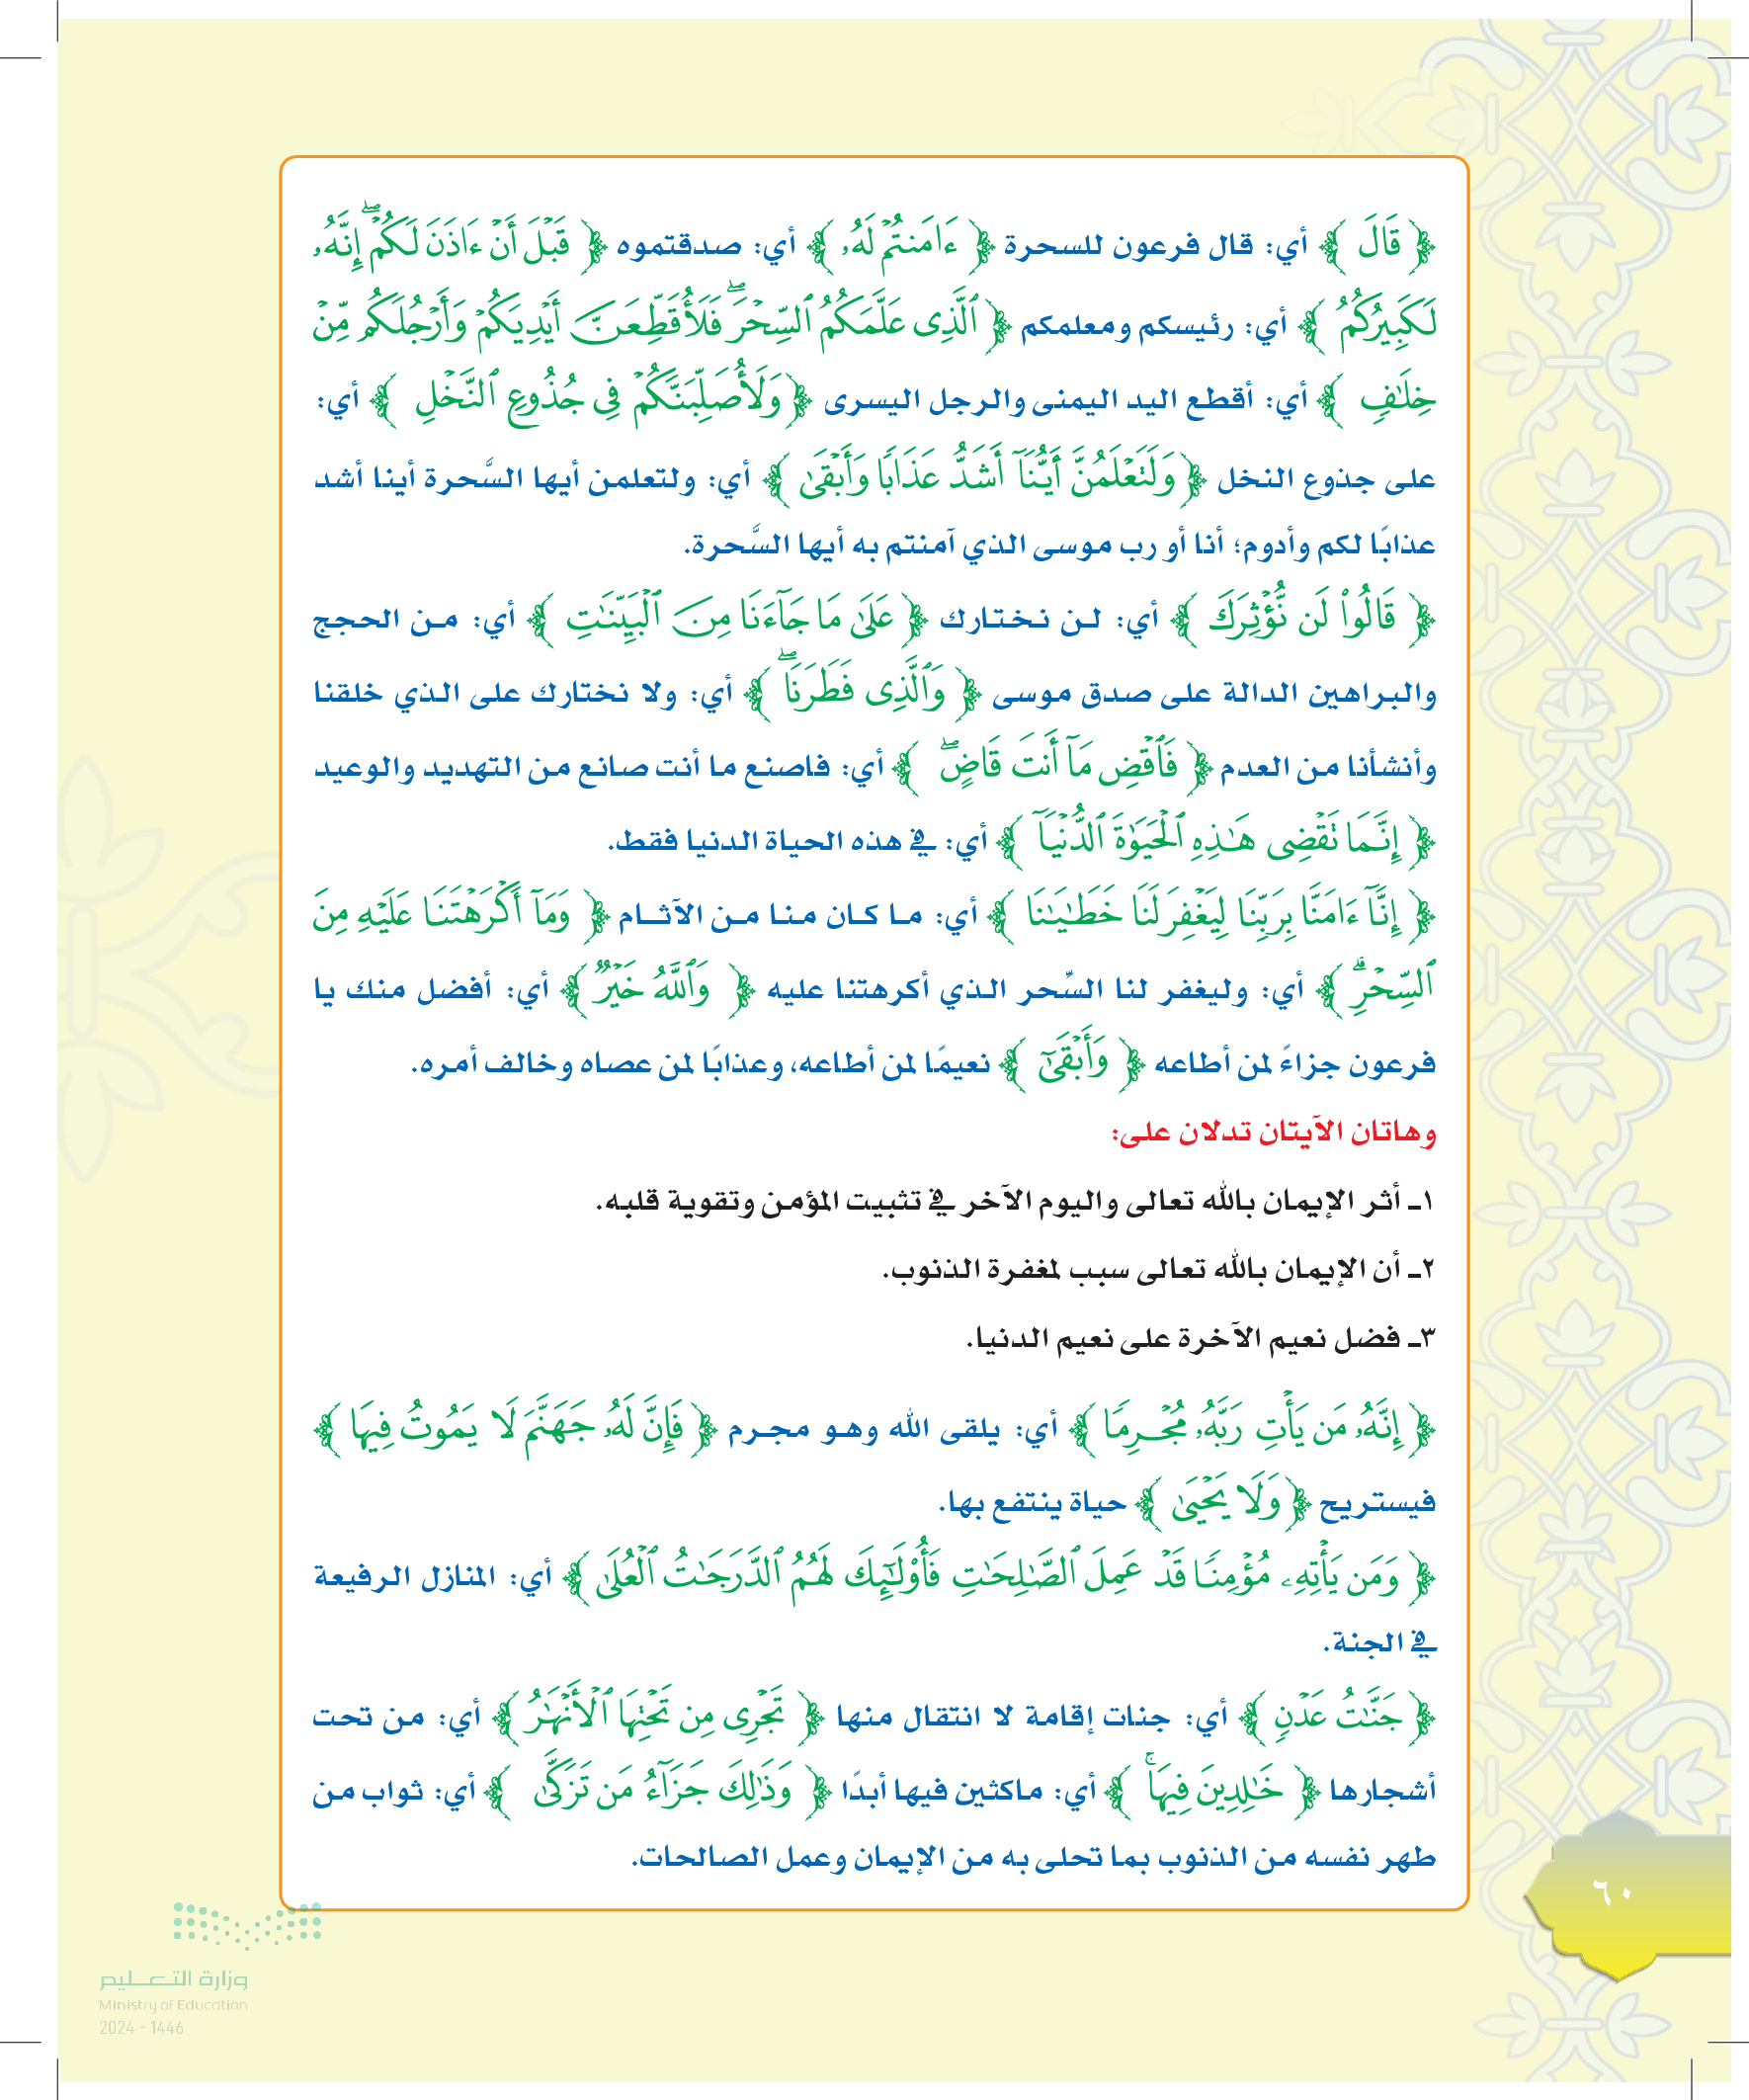 ﴿ قَالَ ﴾ أي: قال فرعون للسحرة ﴿ ءَامَنتُمۡ لَهُۥ ﴾ أي: صدقتموه ﴿ قَبۡلَ أَنۡ ءَاذَنَ لَكُمۡۖ إِنَّهُۥ
لَكَبِيرُكُمُ ﴾ أي: رئيسكم ومعلمكم ﴿ ٱلَّذِى عَلَّمَكُمُ ٱلسِّحۡرَۖ فَلَأُقَطِّعَنَّ أَيۡدِيَكُمۡ وَأَرۡجُلَكُم مِّنۡ
خِلَٰفٍ ﴾ أي: أقطع اليد اليمنى والرجل اليسرى ﴿ وَلَأُصَلِّبَنَّكُمۡ فِى جُذُوعِ ٱلنَّخۡلِ ﴾ أي:
على جذوع النخل ﴿ وَلَتَعۡلَمُنَّ أَيُّنَآ أَشَدُّ عَذَابًا وَأَبۡقَىٰ ﴾ أي: ولتعلمن أيها السَّحرة أينا أشد
عذابًا لكم وأدوم؛ أنا أو رب موسى الذي آمنتم به أيها السَّحرة.
﴿ قَالُوا۟ لَن نُّؤۡثِرَكَ ﴾ أي: لن نختارك ﴿ عَلَىٰ مَا جَآءَنَا مِنَ ٱلۡبَيِّنَٰتِ ﴾ أي: من الحجج
والبراهين الدالة على صدق موسى ﴿ وَٱلَّذِى فَطَرَنَاۖ ﴾ أي: ولا نختارك على الذي خلقنا
وأنشأنا من العدم ﴿ فَٱقۡضِ مَآ أَنتَ قَاضٍۖ ﴾ أي: فاصنع ما أنت صانع من التهديد والوعيد
﴿ إِنَّمَا تَقۡضِى هَٰذِهِ ٱلۡحَيَوٰةَ ٱلدُّنۡيَآ ﴾ أي: في هذه الحياة الدنيا فقط.
﴿ إِنَّآ ءَامَنَّا بِرَبِّنَا لِيَغۡفِرَ لَنَا خَطَٰيَٰنَا ﴾ أي: ما كان منا من الآثام ﴿ وَمَآ أَكۡرَهۡتَنَا عَلَيۡهِ مِنَ
ٱلسِّحۡرِۗ ﴾ أي: وليغفر لنا السِّحر الذي أكرهتنا عليه ﴿ وَٱللَّهُ خَيۡرٌ ﴾ أي: أفضل منك يا
فرعون جزاءً لمن أطاعه ﴿ وَأَبۡقَىٰٓ ﴾ نعيمًا لمن أطاعه، وعذابًا لمن عصاه وخالف أمره.
وهاتان الآيتان تدلان على:
١ـ أثر الإيمان بالله تعالى واليوم الآخر في تثبيت المؤمن وتقوية قلبه.
٢ـ أن الإيمان بالله تعالى سبب لمغفرة الذنوب.
٣ـ فضل نعيم الآخرة على نعيم الدنيا.
﴿ إِنَّهُۥ مَن يَأۡتِ رَبَّهُۥ مُجۡرِمًا ﴾ أي: يلقى الله وهو مجرم ﴿ فَإِنَّ لَهُۥ جَهَنَّمَ لَا يَمُوتُ فِيهَا ﴾
فيستريح ﴿ وَلَا يَحۡيَىٰ ﴾ حياة ينتفع بها.
﴿ وَمَن يَأۡتِهِۦ مُؤۡمِنًا قَدۡ عَمِلَ ٱلصَّٰلِحَٰتِ فَأُو۟لَٰٓئِكَ لَهُمُ ٱلدَّرَجَٰتُ ٱلۡعُلَىٰ ﴾ أي: المنازل الرفيعة
في الجنة.
﴿ جَنَّٰتُ عَدۡنٍ ﴾ أي: جنات إقامة لا انتقال منها ﴿ تَجۡرِى مِن تَحۡتِهَا ٱلۡأَنۡهَٰرُ ﴾ أي: من تحت
أشجارها ﴿ خَٰلِدِينَ فِيهَاۚ ﴾ أي: ماكثين فيها أبدًا ﴿ وَذَٰلِكَ جَزَآءُ مَن تَزَكَّىٰ ﴾ أي: ثواب من
طهر نفسه من الذنوب بما تحلى به من الإيمان وعمل الصالحات.
٦٠
وزارة التعليم
Ministry of Education
2024 - 1446